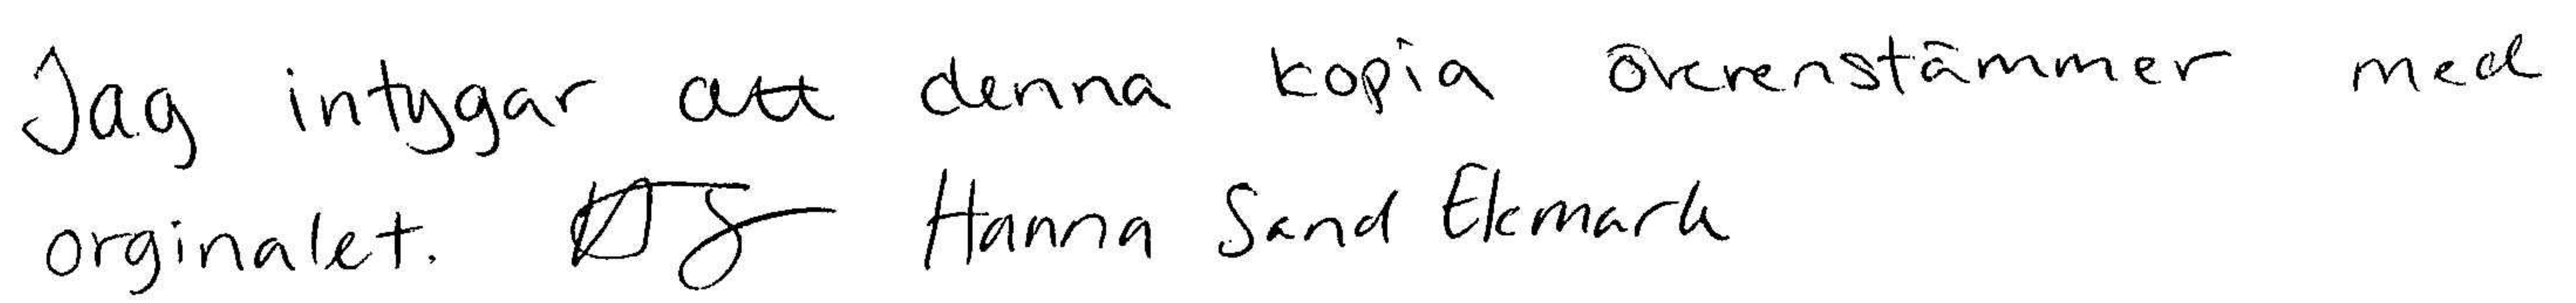 Jag intygar att denna kopia överenstämmer med
orginalet. Hanna Sand Ekmark